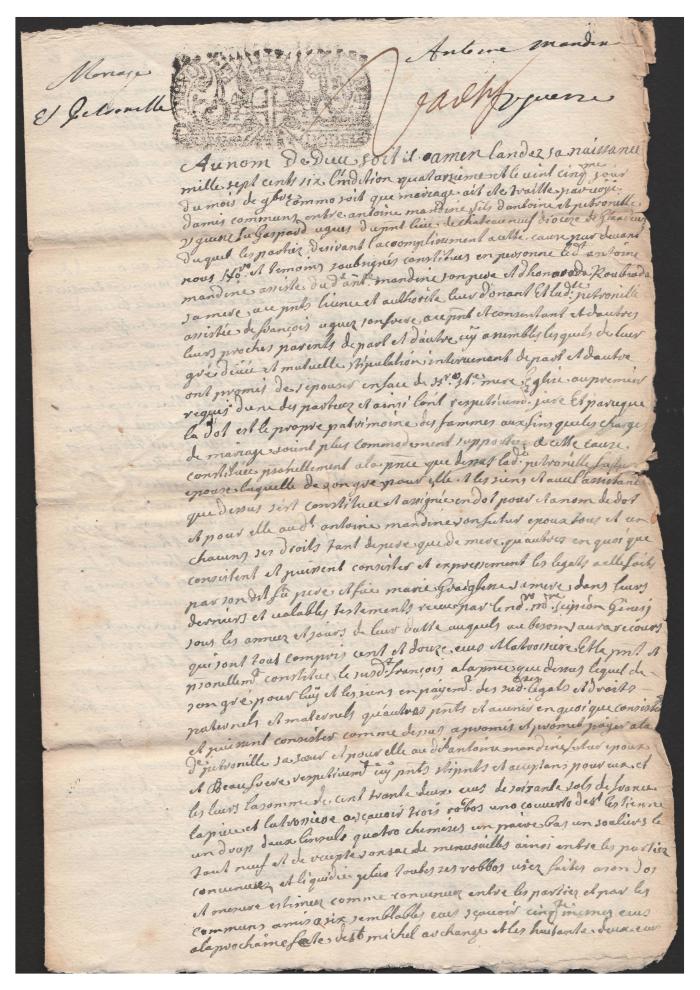 Mariage
Antoine Mandin
Et Petronille
uguesse
Au nom de Dieu soit il amen lan de sa naissance
mille sept cents six Indition quatorsieme et le vint cinq.me jour
du mois de 9bre comme soit que mariage ait ete traitte par voye
damis communs entre antoine mandine fils dantoine et petronille
uguesse fu Gaspard ugues du pnt lieu de chateauneuf diocese de
duquel les parties desirant lacomplissement a cette cause par devant
nous no.re et temoins soubsignés constitues en personne led.t antoine
mandine assisté du d. ant.e mandine son pere et dhonorade Roubaude
sa mere icy pnts licence et authorité luer donant et lad.e petronille
assistée de françois ugues son frere icy pnt et consentant et dautres
leurs proches parents de part et dautre icy assembles lesquels de leur
gré deüe et mutuelle stipulation intervenant de part et dautre
ont promis de sepouser en face de n.re s.te mere Eglise au premier
requis dune des parties et ainsi lont respectivem.t juré Et parceque
la dot est le propre patrimoine des fammes aux fins que les charges
de mariage soint plus commodement supportées a cette cause
constituée psonellement a la pnce que dessus lad.e petronille future
epouse laquelle de son gré pour elle et les siens et avec lassistance
que dessus sest constituee et assignée en dot pour et a nom de dot
et pour elle aud.t antoine mandine son futur epoux tous et un
chacuns ses droits tant de pere que de mere, qu autres en quoy que
consistent et puissent consister et expressement les legats a elle faits
par son dit fû pere et füe marie sa mere dans leurs
derniers et valables testements receus par led no.re m.e scipion
sous les annees et jours de leur datte auquels au besoin aura recours
qui sont tout compris cent et douze ecus Et le pnt et
psonellem.t constitue le susd.t françois a la pnce que dessus lequel de
son gré pour luy et les siens en payem.t des susd. legats et droits
paternels et maternels qu autres pnts et avenir en quoi que consistent
et puissent consister comme dessus a promis et promet payer a la
d.e petronille sa sœur et pour elle au dit antoine mandine futur epoux
et Beaufrere respectivem.t icy pnts stipnts et aceptans pour eux et
les leurs la somme de cent trante deux ecus de soixante sols de france
la piece et la trossiere a sçavoir trois robes une couverte de
un drap deux linsuls quatre chemises un paire bas un souliers le
tout neuf et de menusailles ainsi entre les parties
convenues et liquidées plus toutes ses robbos usez faites a son dos
et mesure estimez comme convenues entre les parties et par les
communs amis a six semblables ecus sçavoir cinq.te memes ecus
a la prochaine feste de st michel archange et les huitante deux ecus